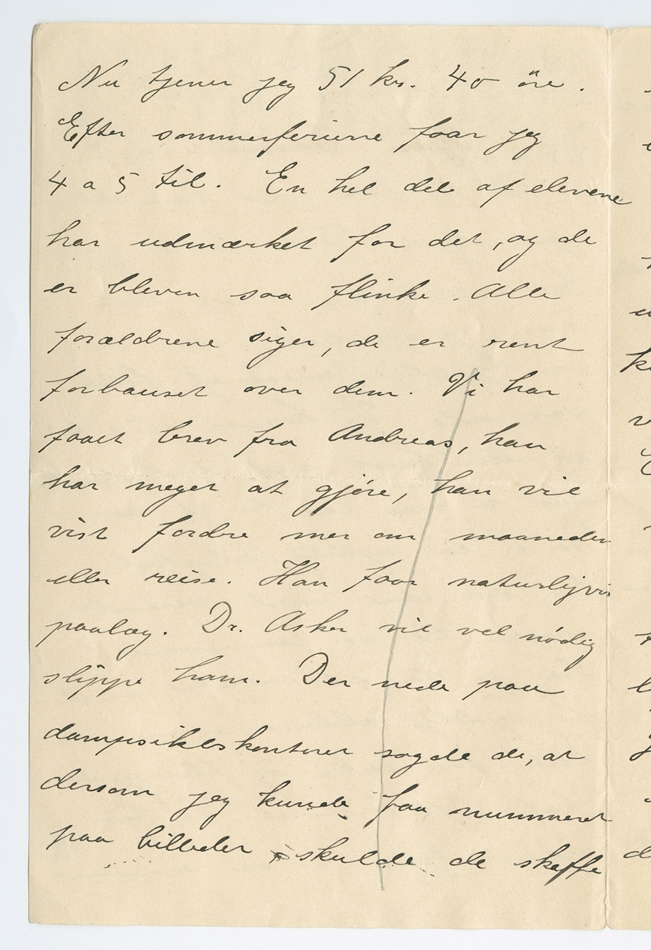 Nu tjener jeg 51 kr. 40 øre.
Efter sommerferierne faar jeg
4 a 5 til. En hel del af elevene
har udmærket for det, og de
er bleven saa flinke. Alle
forældrene siger, de er rent
forbauset over dem. Vi har
faaet brev fra Andreas, han
har meget at gjøre, han vil
vist fordre mer om maaneden
eller reise. Han faar naturligvis
paalæg. Dr. Asker vil vel nødig
slippe ham. Der nede paa
sagde de, at
dersom jeg kunde faa nummeret
paa billeder skulde de skaffe